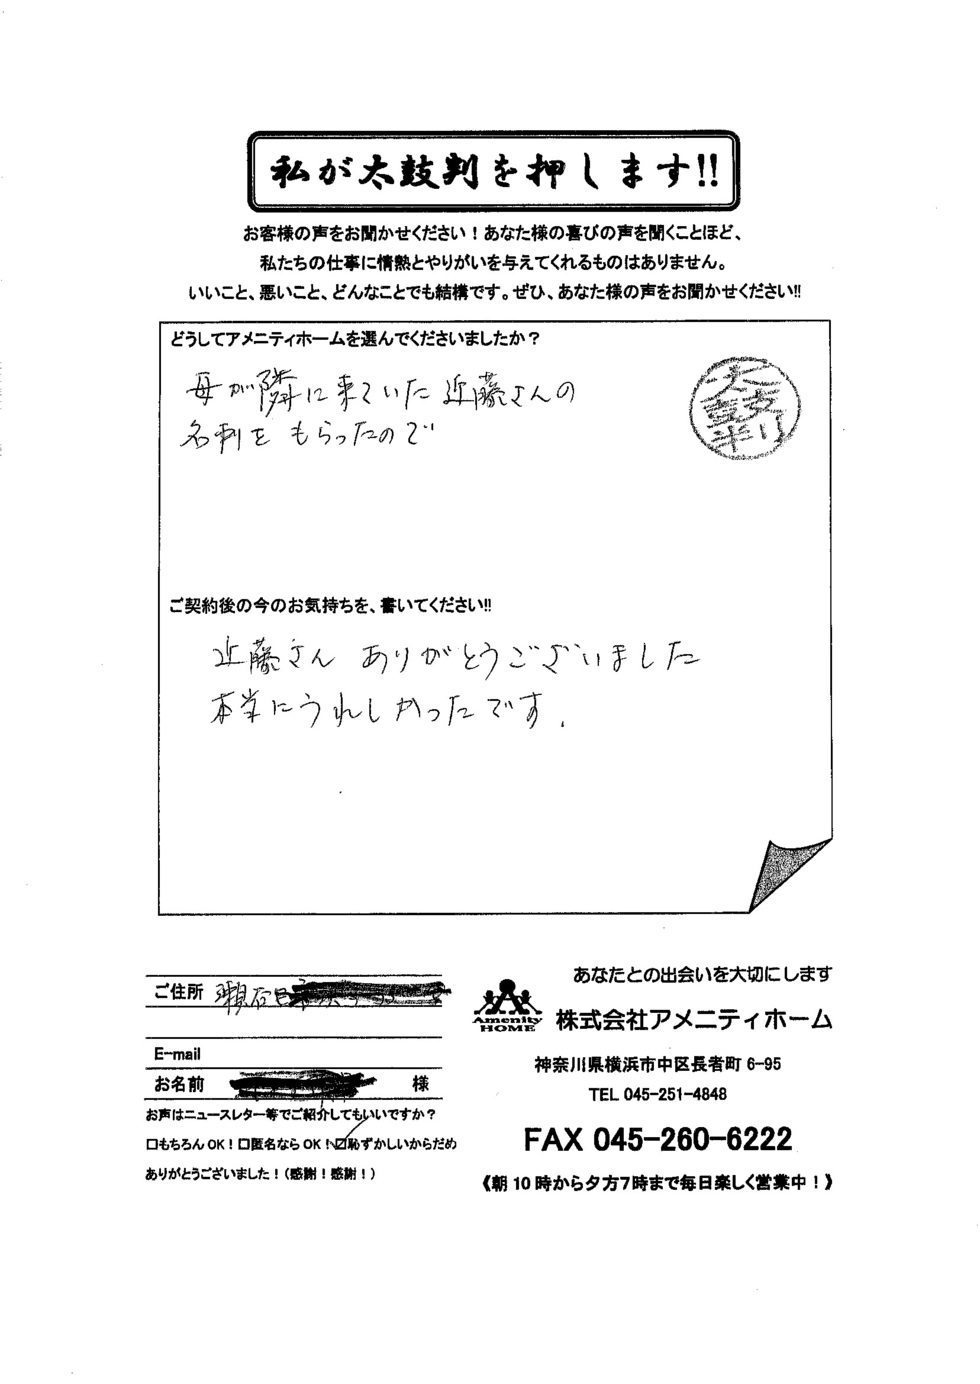 私が太鼓判を押します!!
お客様の声をお聞かせください！あなた様の喜びの声を聞くことほど、
私たちの仕事に情熱とやりがいを与えてくれるものはありません。
いいこと、悪いこと、どんなことでも結構です。ぜひ、あなた様の声をお聞かせください!!
どうしてアメニティホームを選んでくださいましたか？
母が隣に来ていた近藤さんの
名刺をもらったので
太鼓判
ご契約後の今のお気持ちを、書いてください!!
近藤さん ありがとうございました
本当にうれしかったです.
ご住所 瀬谷区
E-mail
お名前 様
お声はニュースレター等でご紹介してもいいですか？
☐もちろんOK！☐匿名ならOK！☑恥ずかしいからだめ
ありがとうございました！（感謝！感謝！）
あなたとの出会いを大切にします
Amenity
HOME
株式会社アメニティホーム
神奈川県横浜市中区長者町 6-95
TEL 045-251-4848
FAX 045-260-6222
《朝10時から夕方7時まで毎日楽しく営業中！》